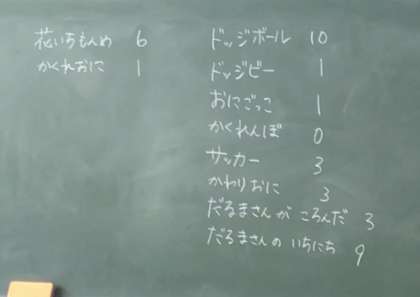 花いちもんめ 6
かくれおに 1
ドッジボール 10
ドッジビー 1
おにごっこ 1
かくれんぼ 0
サッカー 3
かわりおに 3
だるまさんが ころんだ 3
だるまさんの いちにち 9